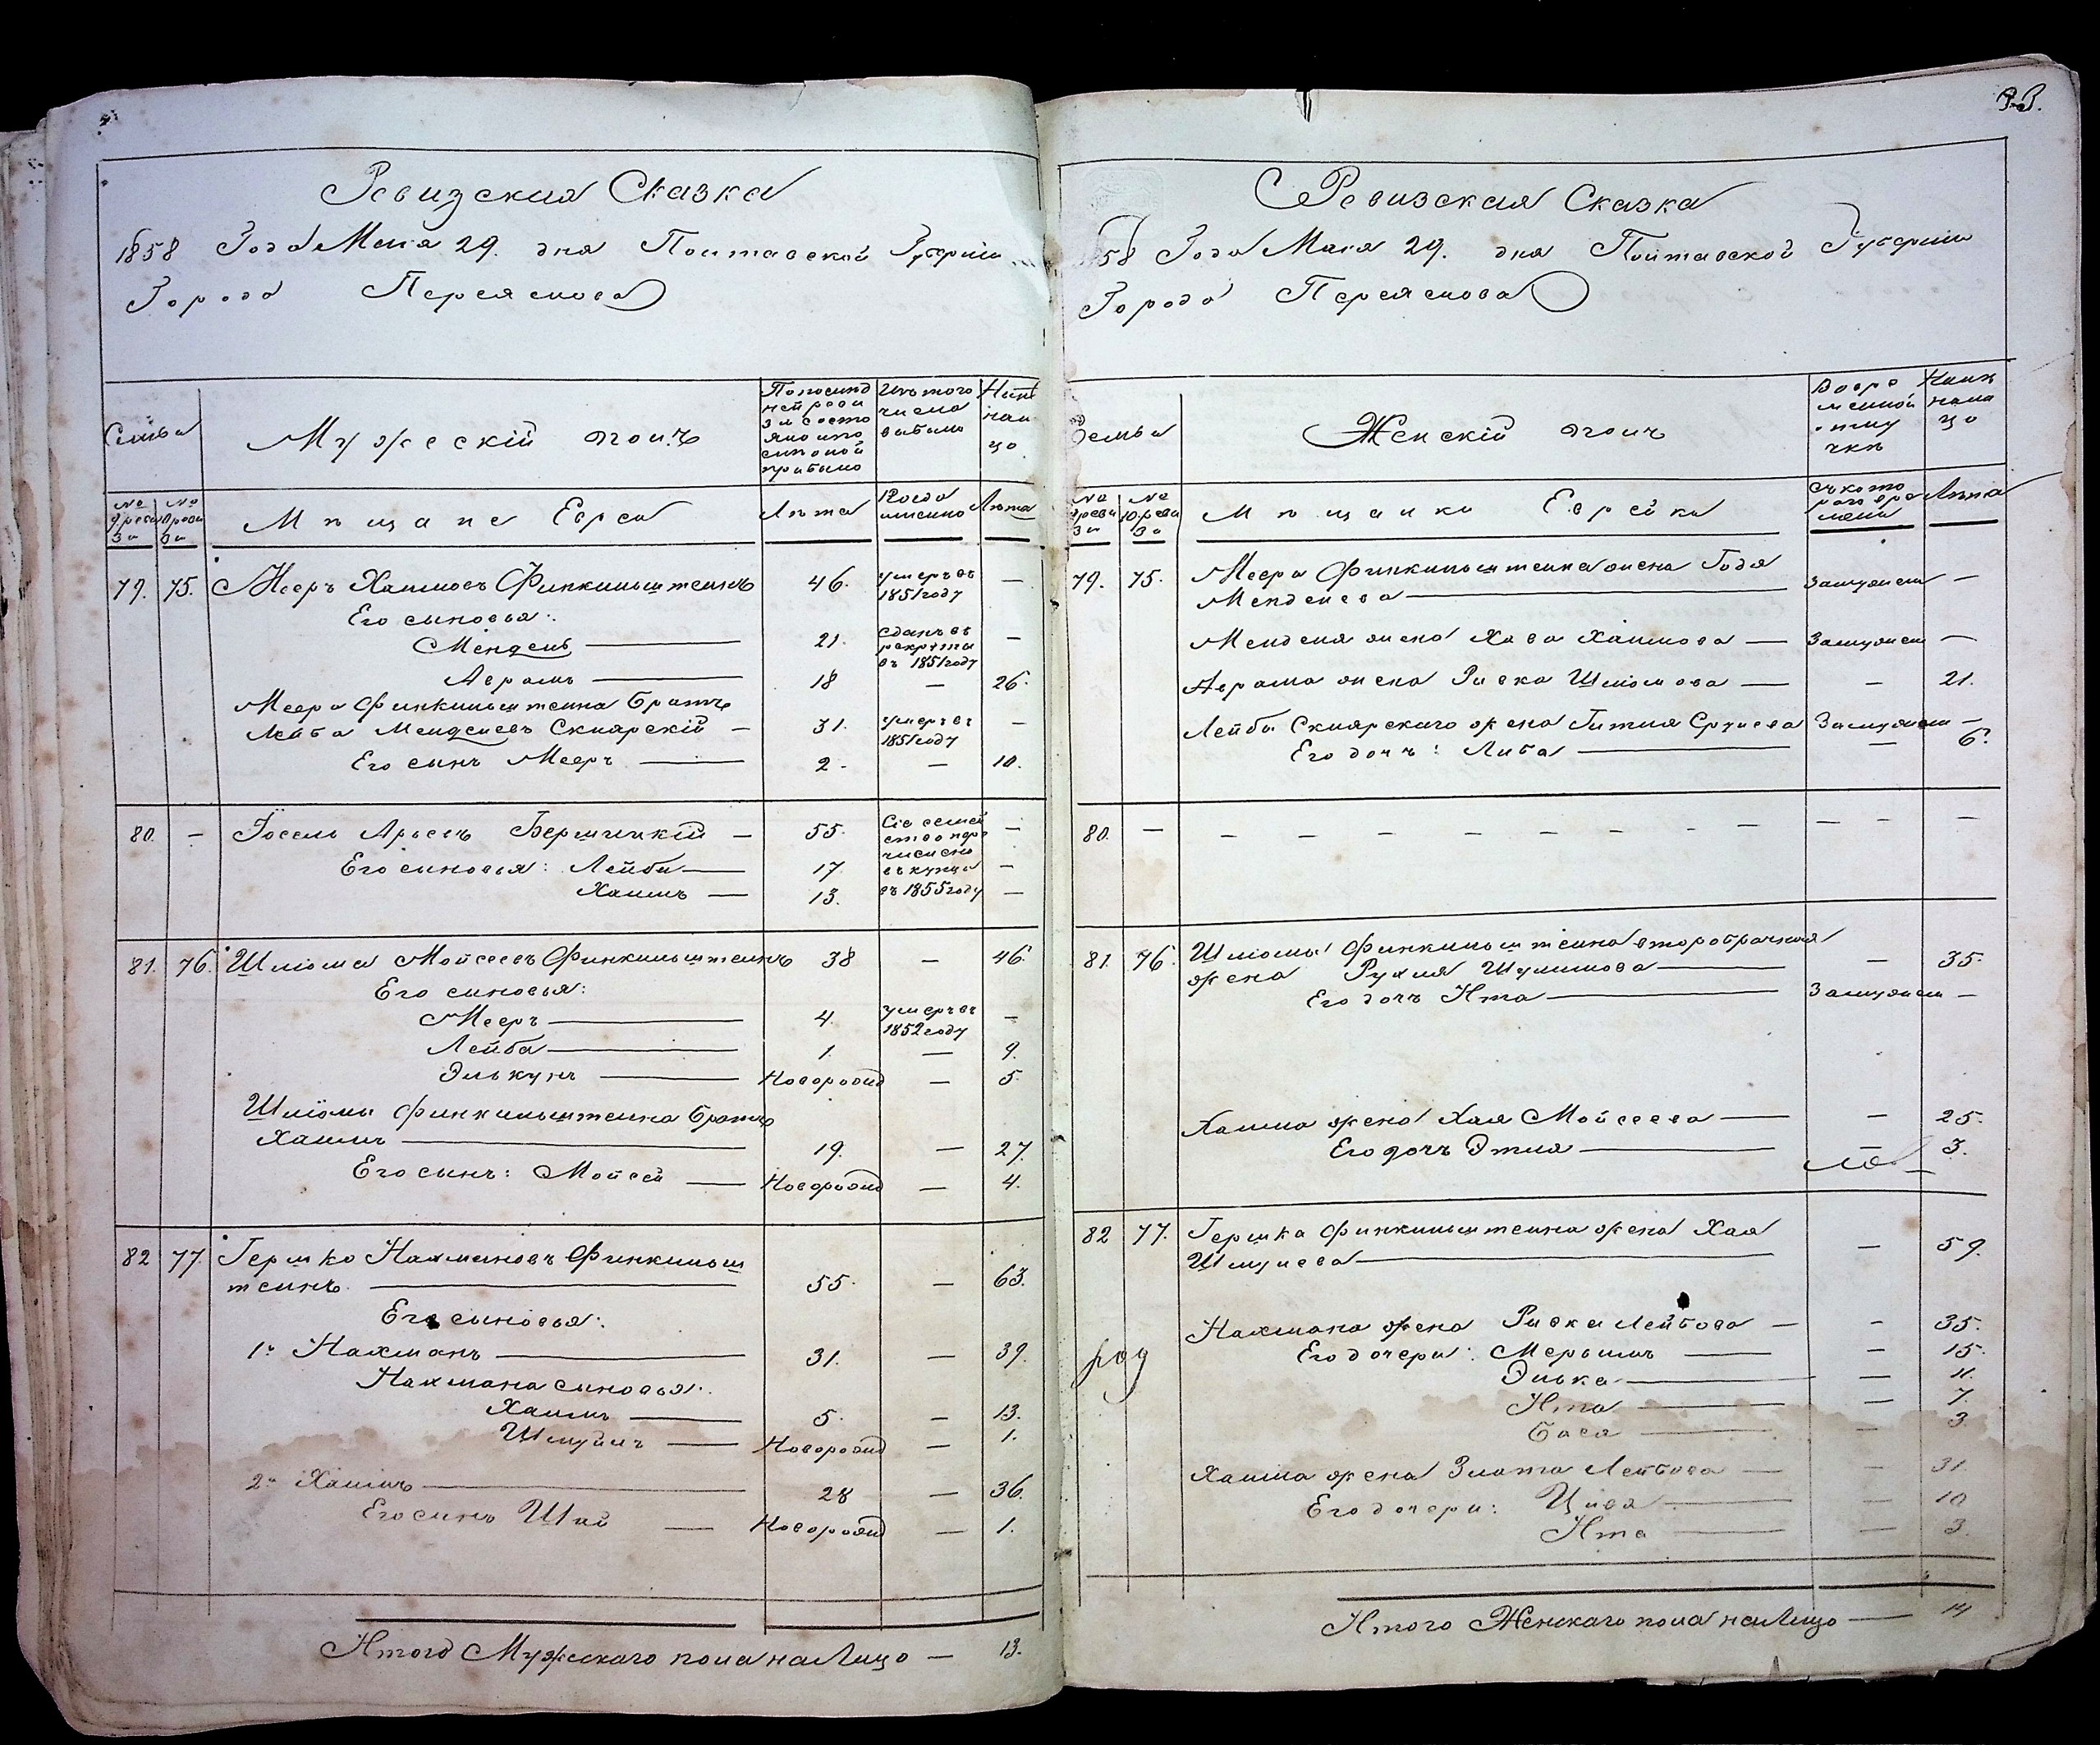 Ревизская Сказка
1858 Года Мая 29. дня Полтавской Губерніи
Города Переяслова
Семьи
Мужескій полъ
По последней ревизіи состояло и после оной прибыло
Изъ того числа выбыло
Ныне на лицо
№ 9 ревизіи
№ 10 ревизіи
Мѣщане Евреи
Лѣта
Когда именно
Лѣта
79. 75. Мееръ Хаимовъ Финкильштеинъ 46. умеръ въ 1851 году —
Его сыновья:
Мендель — 21. сданъ въ рекруты въ 1851 году —
Аврамъ — 18 — 26.
Меера Финкильштеина братъ
Лейба Менделевъ Склярскій — 31. умеръ въ 1851 году —
Его сынъ Мееръ — 2. — 10.
80. — Іосель Арьевъ — 55. Сіе семейство перечислено въ купцы въ 1855 году —
Его сыновья: Лейба — 17. —
Хаимъ — 13. —
81. 76. Шліома Мойсеевъ Финкильштеинъ 38 — 46.
Его сыновья:
Мееръ — 4. умеръ въ 1852 году —
Лейба — 1. — 9.
Элькунъ — Новорожд — 5.
Шліомы Финкильштеина братъ
Хаимъ — 19. — 27.
Его сынъ: Мойсей — Новорожд — 4.
82 77. Гершко Нахмановъ Финкильш
теинъ — 55. — 63.
Его сыновья:
1й Нахманъ — 31. — 39.
Нахмана сыновья:
Хаимъ — 5. — 13.
Шмуйлъ — Новорожд — 1.
2й Хаимъ — 28 — 36.
Его сынъ Шай — Новорожд — 1.
Итого Мужескаго пола на Лицо — 13.
33.
Ревизская Сказка
58 Года Мая 29. дня Полтавской Губерніи
Города Переяслова
Семьи
Женскій полъ
Во временной отлучкѣ
Ныне на лицо
№ 9 ревизіи
№ 10 ревизіи
Мѣщанки Еврейки
съ котораго времени
Лѣта
79. 75. Меера Финкильштеина жена Годя
Менделева — Замужем —
Менделя жена Хава Хаимова — Замужем —
Аврама жена Ривка Шліомова — — 21.
Лейбы Склярскаго жена Гитля Срулева Замужем —
Его дочь: Либа — — 6.
80. — — — — — — — — — — — —
81. 76. Шліомы Финкильштеина второбрачная
жена Рухля Шулимова — — 35.
Его дочь Ита — Замужем —
Хаима жена Хая Мойсеева — — 25.
Его дочь Этля — — 3.
82 77. Гершка Финкильштеина жена Хая
Шмулева — — 59.
Нахмана жена Ривка Лейбова — — 35.
Его дочери: Мерьимъ — — 15.
Элька — — 11.
Ита — — 7.
Бася — — 3
Хаима жена Злата Лейбова — — 31.
Его дочери: Цивя — — 10
Ита — — 3.
Итого Женскаго пола на Лицо — 14